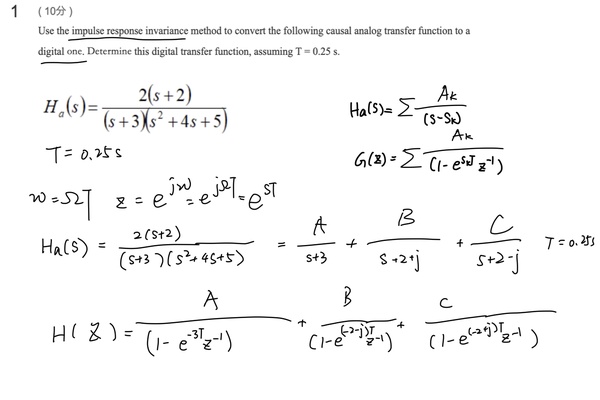 1 (10分)
Use the impulse response invariance method to convert the following causal analog transfer function to a
digital one. Determine this digital transfer function, assuming T = 0.25 s.
H_a(s)= 2(s+2) / (s+3)(s²+4s+5)
Ha(s)= Σ Ak / (s-sk)
T= 0.25s
G(z)= Σ Ak / (1- e^{skT} z^{-1})
w=ΩT z = e^{jw} = e^{jΩT} = e^{sT}
Ha(s) = 2(s+2) / (s+3)(s²+4s+5) = A / s+3 + B / s+2+j + C / s+2-j T=0.25s
H(z)= A / (1- e^{-3T} z^{-1}) + B / (1-e^{(-2-j)T} z^{-1}) + C / (1-e^{(-2+j)T} z^{-1})